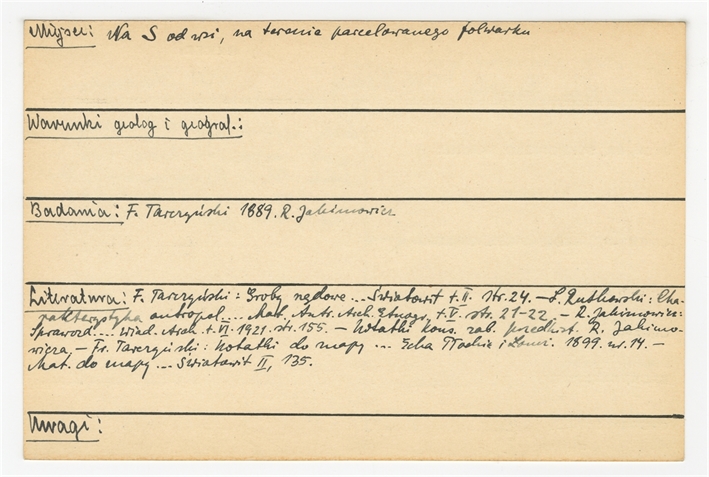 Miejsce: Na S od wsi, na terenie parcelowanego folwarku
Warunki geolog i geograf.:
Badania: F. Tarczyński 1889. R. Jakimowicz
Literatura: F. Tarczyński: Groby rzędowe... Światowit t. II. str. 24. – L. Rutkowski: Cha-
rakterystyka antropol.... Mat. Antr. Arch. Etnogr. t. V. str. 21-22 – R. Jakimowicz:
Sprawozd... Wiad. Arch. t. VI. 1921. str. 155. – Notatki kons. zab. przedhist. R. Jakimo-
wicza, – Fr. Tarczyński: Notatki do mapy ... Echa Płockie i Łomż. 1899. nr. 14. –
Mat. do mapy ... Światowit II, 135.
Uwagi: